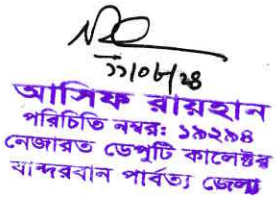 ১১/০৮/২৪
আসিফ রায়হান
পরিচিতি নম্বর: ১৯২৯৪
নেজারত ডেপুটি কালেক্টর
বান্দরবান পার্বত্য জেলা